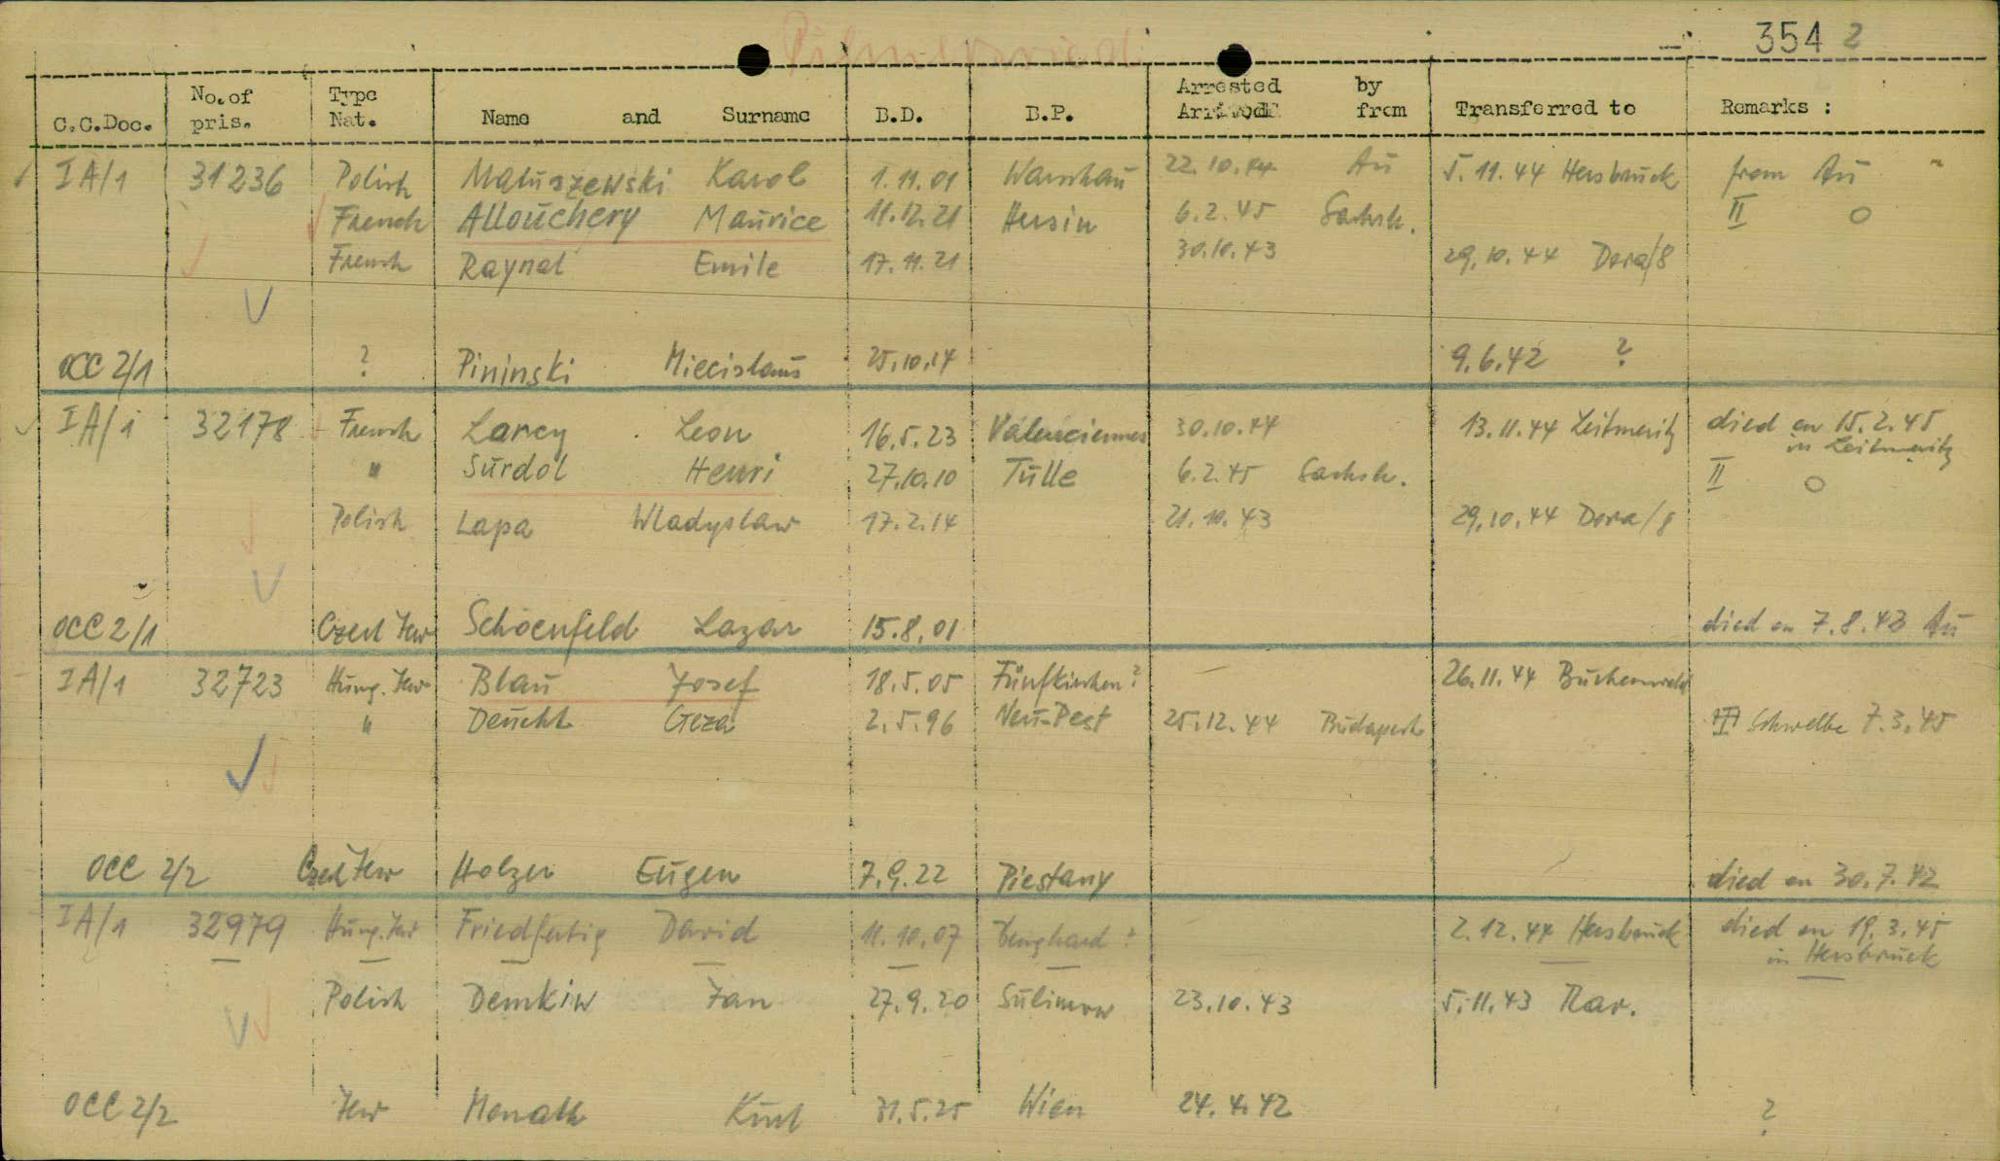 354 2
C.C.Doc. No. of pris. Type Nat. Name and Surname B.D. B.P. Arrested by Arrived from Transferred to Remarks :
IA/1 31236 Polish Matuszewski Karol 1.11.01 Warschau 22.10.44 Au 5.11.44 Hersbruck from Au
French Allouchery Maurice 11.12.21 Hersin 6.2.45 Sachsh. II O
French Raynal Emile 17.11.21 30.10.43 29.10.44 Dora/8
OCC 2/1 ? Pininski Miecislaus 25.10.14 9.6.42 ?
IA/1 32178 French Larcy Leon 16.5.23 Valenciennes 30.10.44 13.11.44 Leitmeritz died on 15.2.45
in Leitmeritz
" Surdol Henri 27.10.10 Tulle 6.2.45 Sachsh. II O
Polish Lapa Wladyslaw 17.2.14 21.10.43 29.10.44 Dora/8
OCC 2/1 Czech Jew Schoenfeld Lazar 15.8.01 died on 7.8.43 Au
IA/1 32723 Hung. Jew Blau Josef 18.5.05 Fünfkirchen? 26.11.44 Buchenwald
" Deucht Geza 2.5.96 Neu-Pest 25.12.44 Budapest III Schwelbe 7.3.45
OCC 2/2 Czech Jew Holzer Eugen 7.9.22 Piestany died on 30.7.42
IA/1 32979 Hung. Jew Friedfertig David 11.10.07 2.12.44 Hersbruck died on 19.3.45
in Hersbruck
Polish Demkiw Jan 27.9.20 Sulimow 23.10.43 5.11.43 Rav.
OCC 2/2 Jew Kurt 31.5.25 Wien 24.4.42 ?